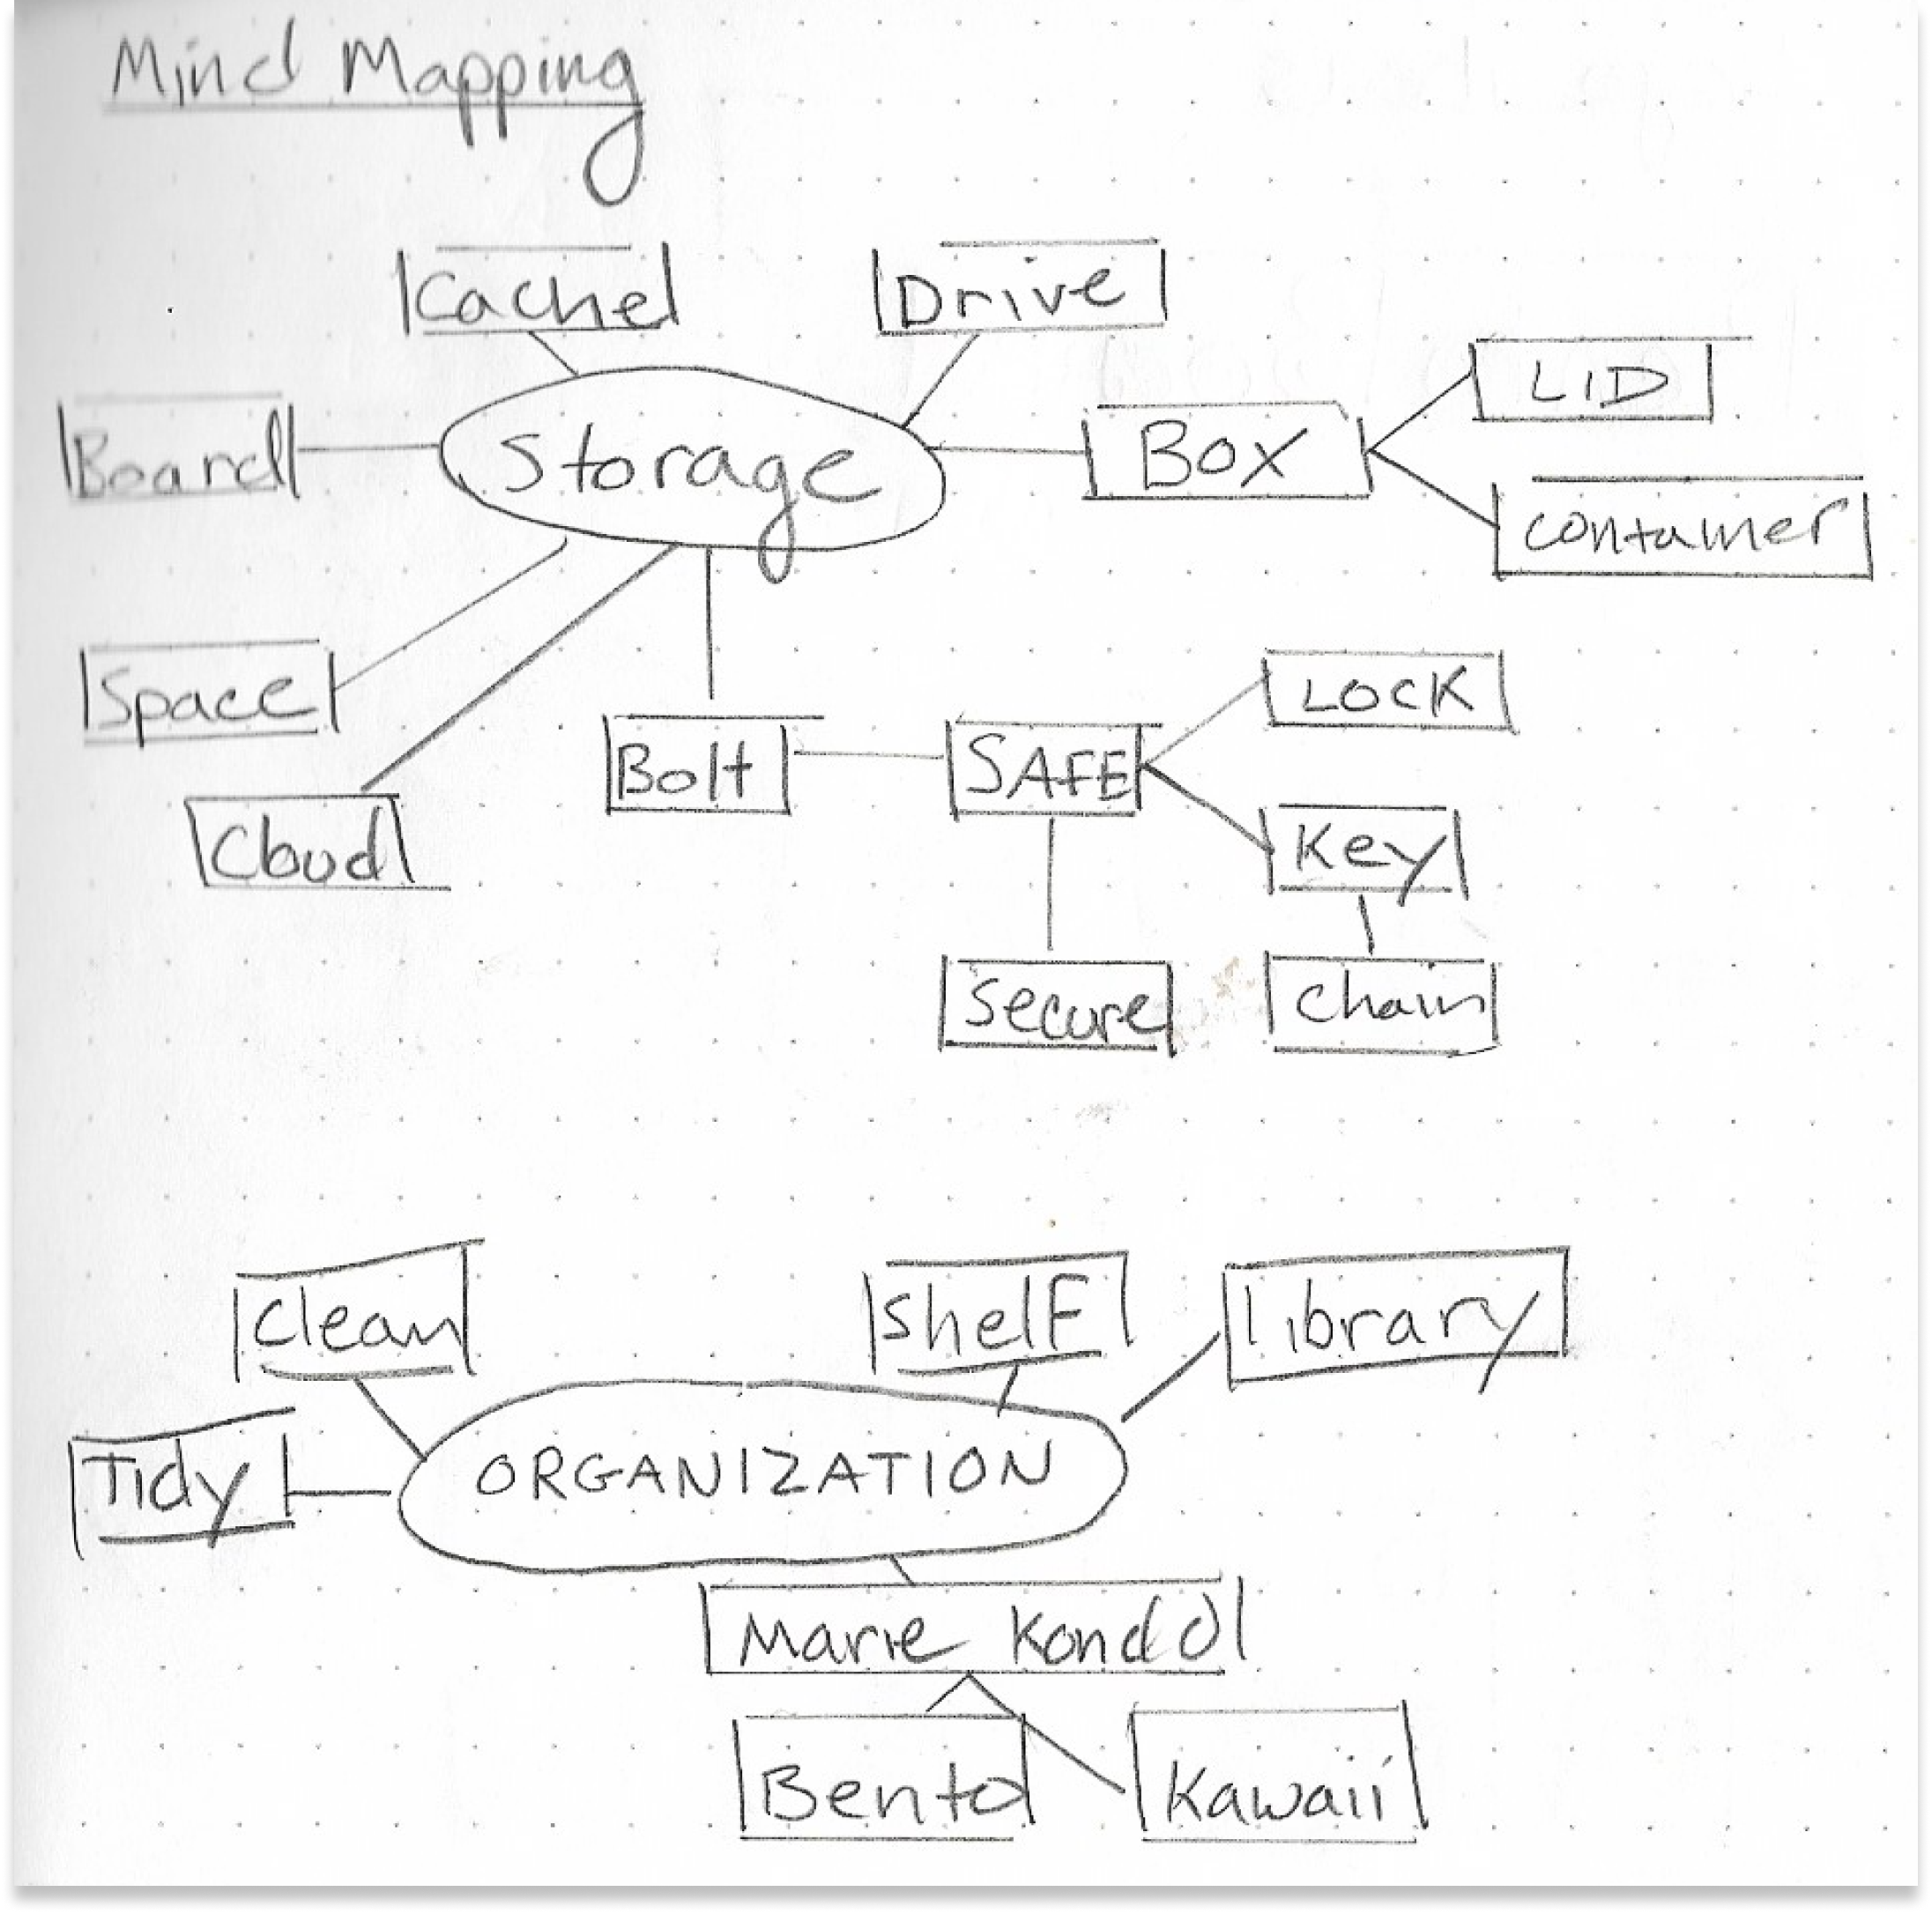 Mind Mapping
Cache
Drive
Board
Storage
BOX
LID
container
Space
Cloud
Bolt
SAFE
LOCK
Key
Secure
Chain
Clean
Shelf
Library
Tidy
ORGANIZATION
Marie Kondo
Bento
Kawaii